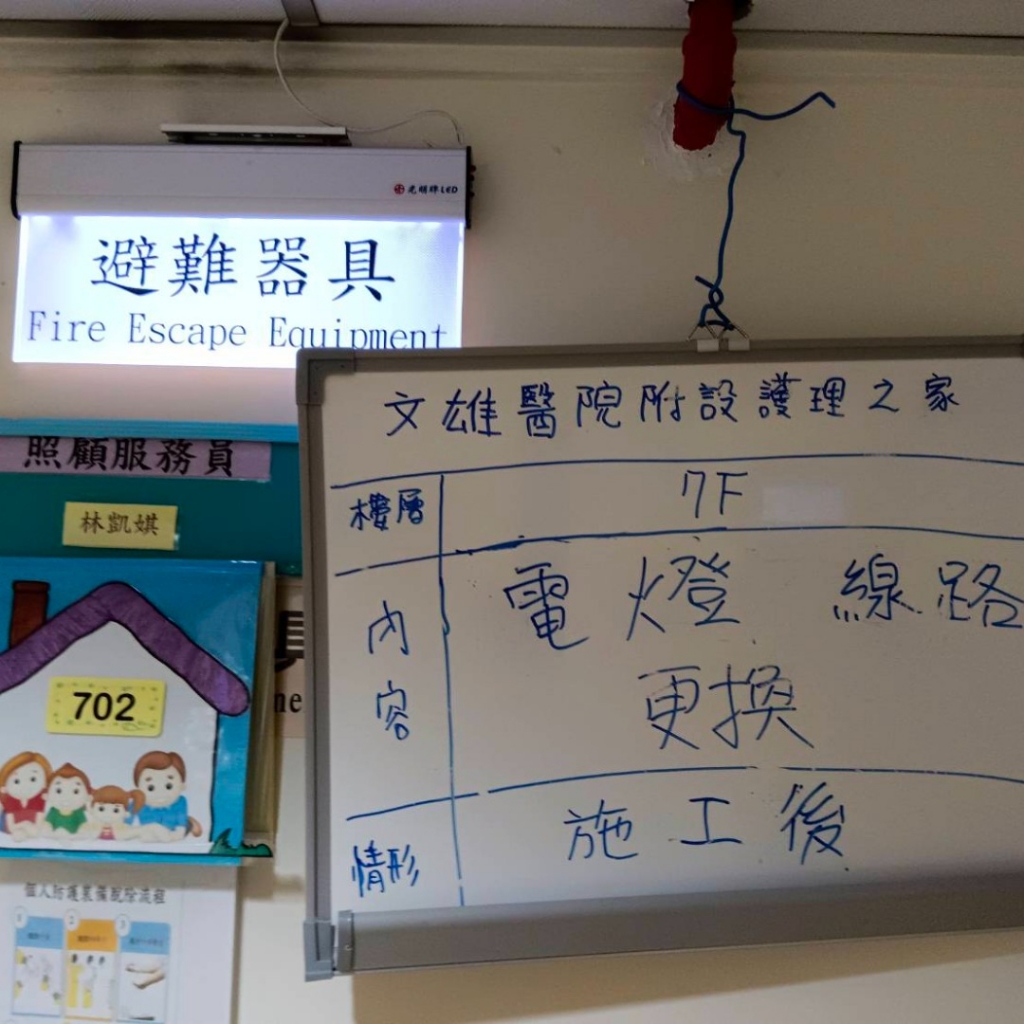 光明牌LED
避難器具
Fire Escape Equipment
照顧服務員
林凱娸
702
個人防護裝備脫除流程
1 2 3
文雄醫院附設護理之家
樓層 7F
內容 電燈 線路
更換
情形 施工後